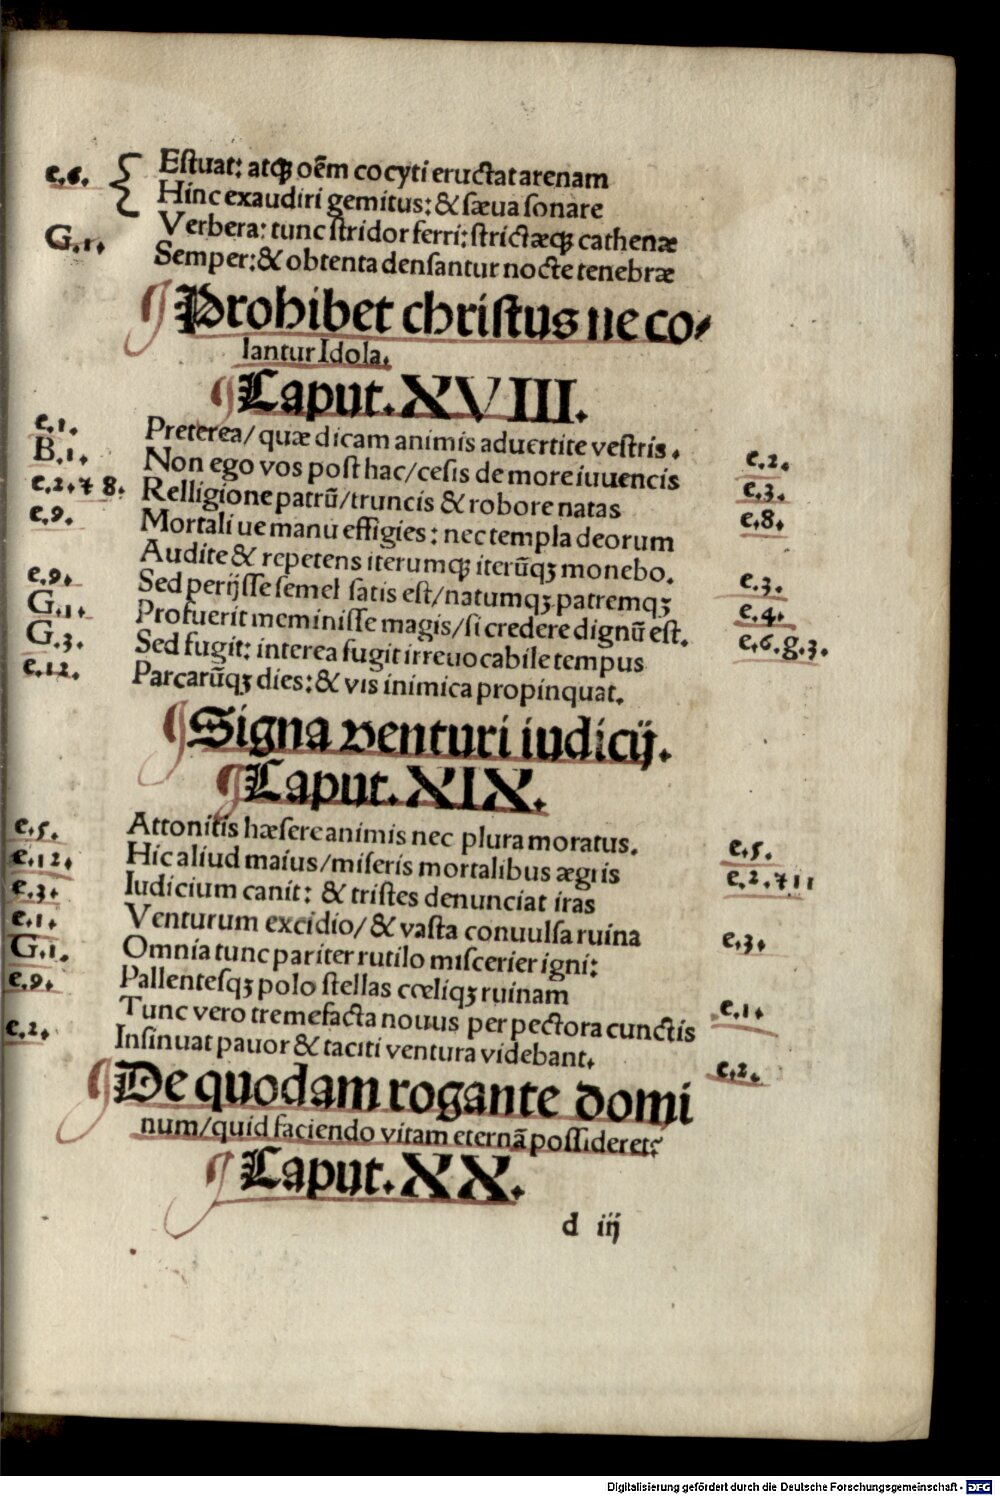 e.6. { Estuat: atqꝫ oēm cocyti eructat arenam
Hinc exaudiri gemitus: & sæua sonare
G.1. Verbera: tunc stridor ferri: strictæqꝫ cathenæ
Semper: & obtenta densantur nocte tenebræ
¶ Prohibet christus ne co⸗
lantur Idola.
¶ Caput. XVIII.
e.1. Preterea/ quæ dicam animis aduertite vestris. e.2.
B.1. Non ego vos post hac/cesis de more iuuencis e.3.
e.2.⁊ 8. Relligione patrū/truncis & robore natas e.8.
e.9. Mortali ue manu effigies: nec templa deorum
Audite & repetens iterumqꝫ iterūqꝫ monebo. e.3.
e.9. Sed perijsse semel satis est/natumqꝫ patremqꝫ e.4.
G.1. Profuerit meminisse magis/si credere dignū est. e.6.g.3.
G.3. Sed fugit: interea fugit irreuocabile tempus
e.12. Parcarūqꝫ dies: & vis inimica propinquat.
¶ Signa venturi iudicij.
¶ Caput. XIX.
e.5. Attonitis hæsere animis nec plura moratus. e.5.
e.12. Hic aliud maius/miseris mortalibus ægris e.2.⁊11
e.3. Iudicium canit: & tristes denunciat iras
e.1. Venturum excidio/& vasta conuulsa ruina e.3.
G.1. Omnia tunc pariter rutilo miscerier igni:
e.9. Pallentesqꝫ polo stellas cœliqꝫ ruinam
Tunc vero tremefacta nouus per pectora cunctis e.1.
e.2. Insinuat pauor & taciti ventura videbant. e.2.
¶ De quodam rogante domi
num/quid faciendo vitam eternā possideret?
¶ Caput. XX.
d iij
Digitalisierung gefördert durch die Deutsche Forschungsgemeinschaft - DFG